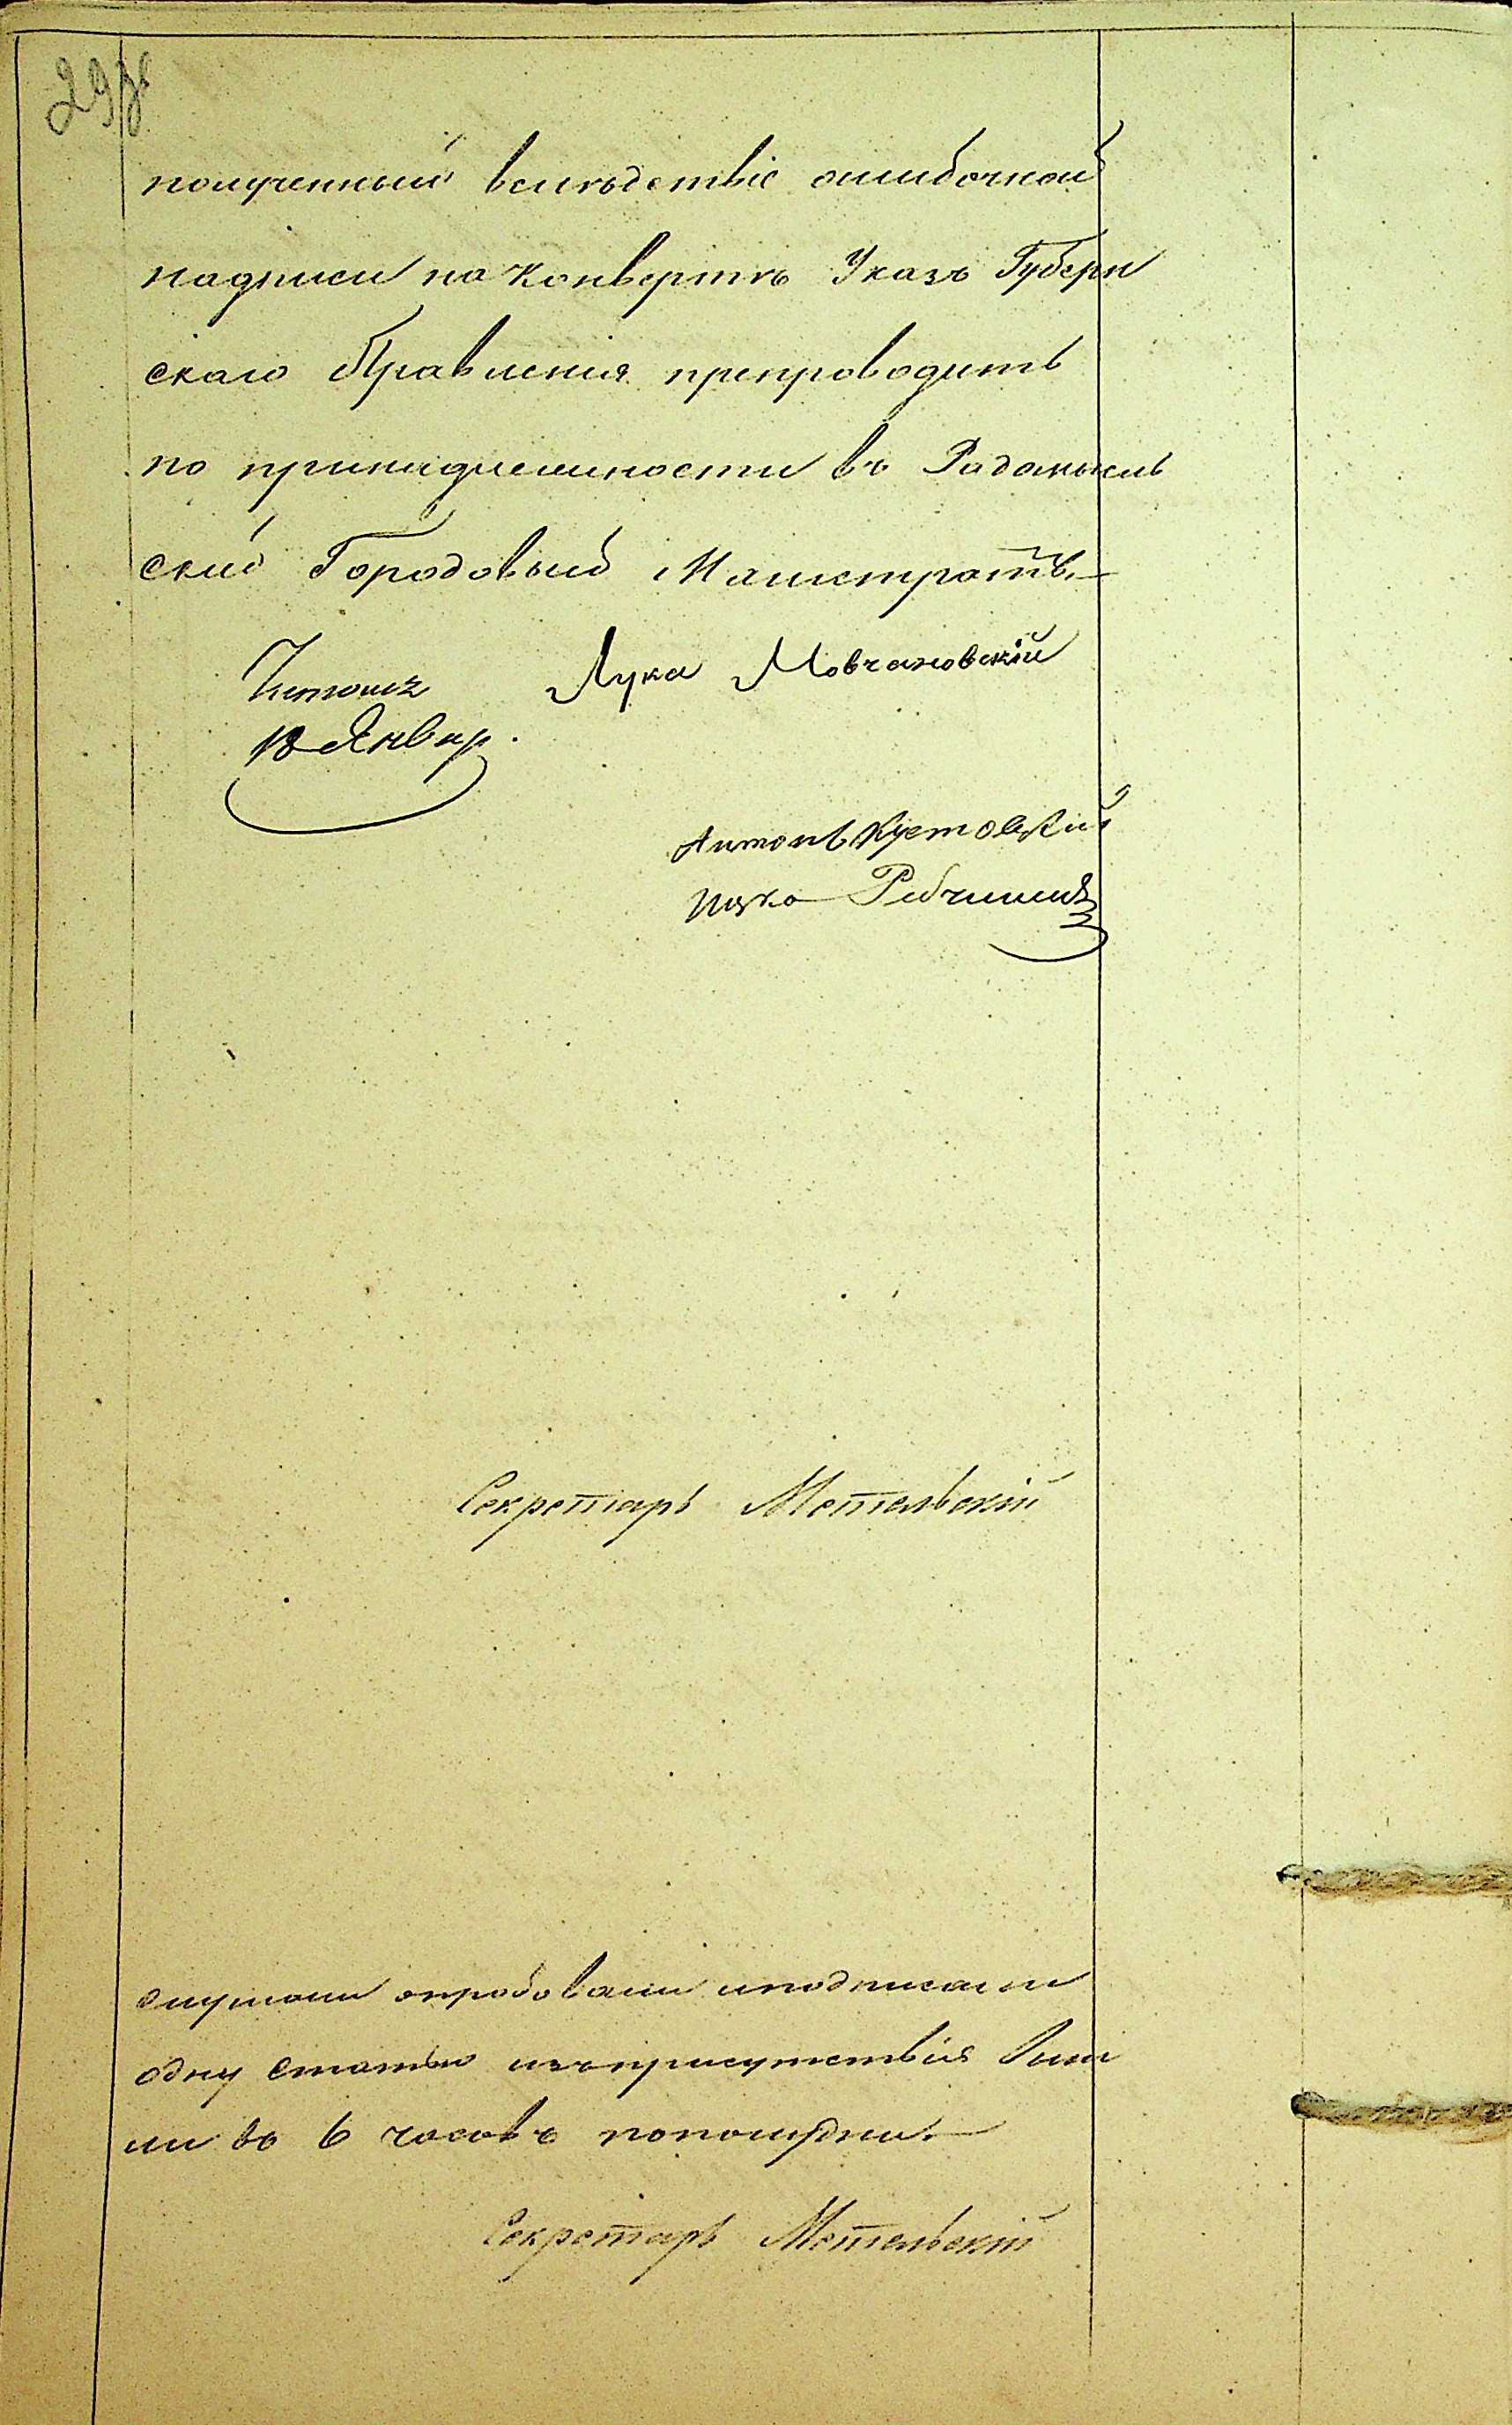 29 об
полученный вслѣдствіе ошибочной
надписи на Конвертѣ Указъ Губерн
скаго Правленія препроводить
по принадлежности въ Радомысль
скій Городовый Магистратъ.
Лука Мовчановскій
18 Январ.
Антонъ Кустовскій
Секретарь Метельскій
слушали опробовали и подписали
одну статью изъ присутствія вышли
ли въ 6 часовъ пополудни.
Секретарь Метельскій